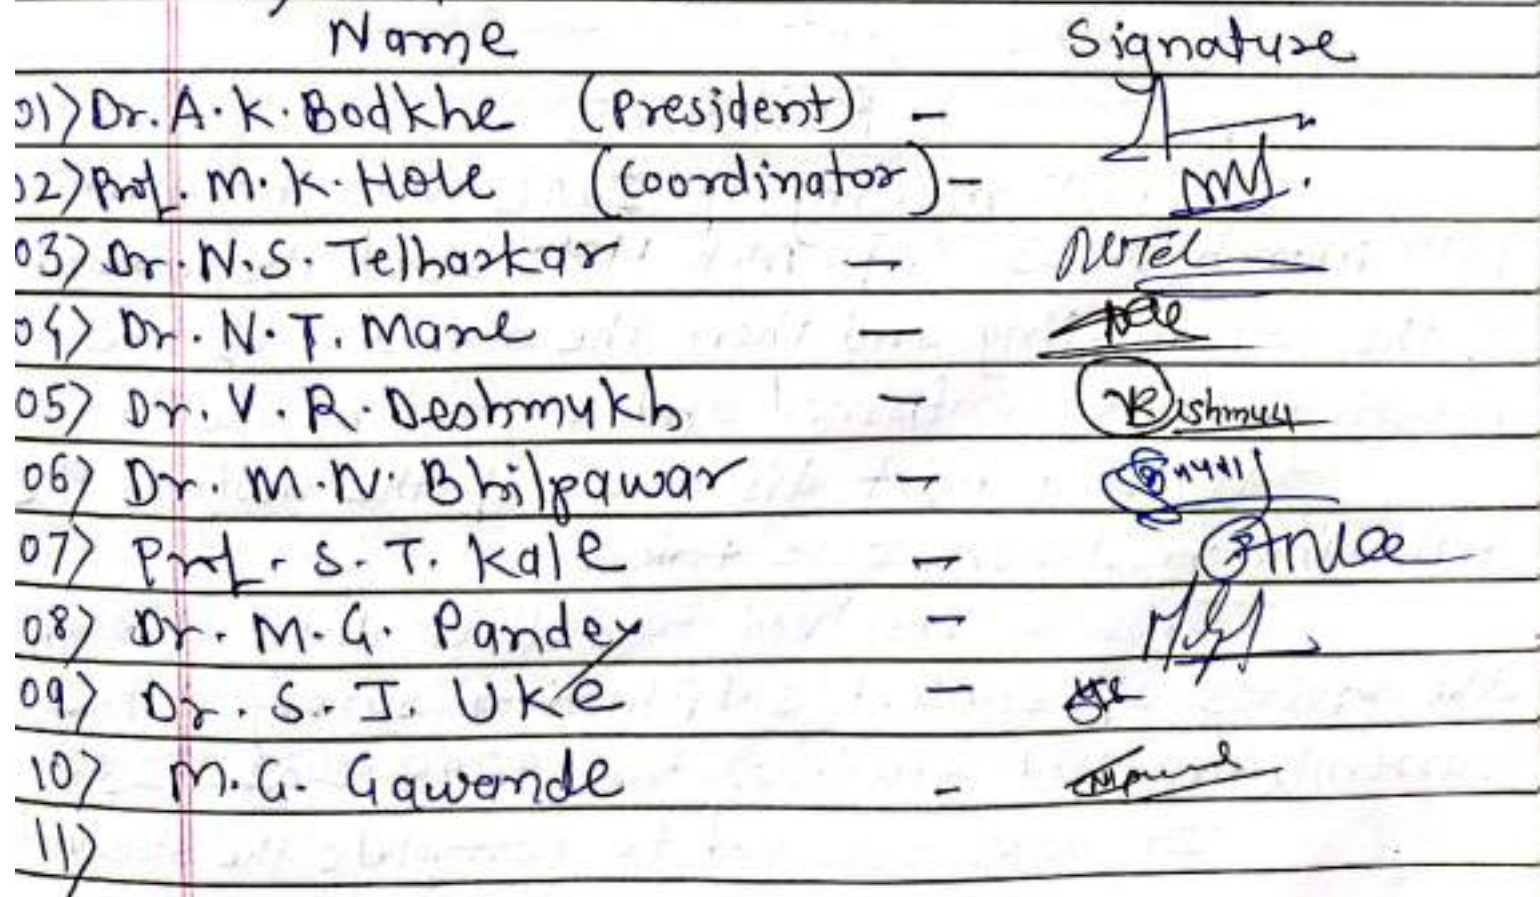 Name Signature
01) Dr. A. K. Bodkhe (President) -
02) Prof. M. K. Hole (Coordinator) -
03) Dr. N. S. Telharkar -
04) Dr. N. T. Mane -
05) Dr. V. R. Deshmukh -
06) Dr. M. N. Bhilpawar -
07) Prof. S. T. Kale -
08) Dr. M. G. Pandey -
09) Dr. S. J. Uke -
10) M. G. Gawande -
11)